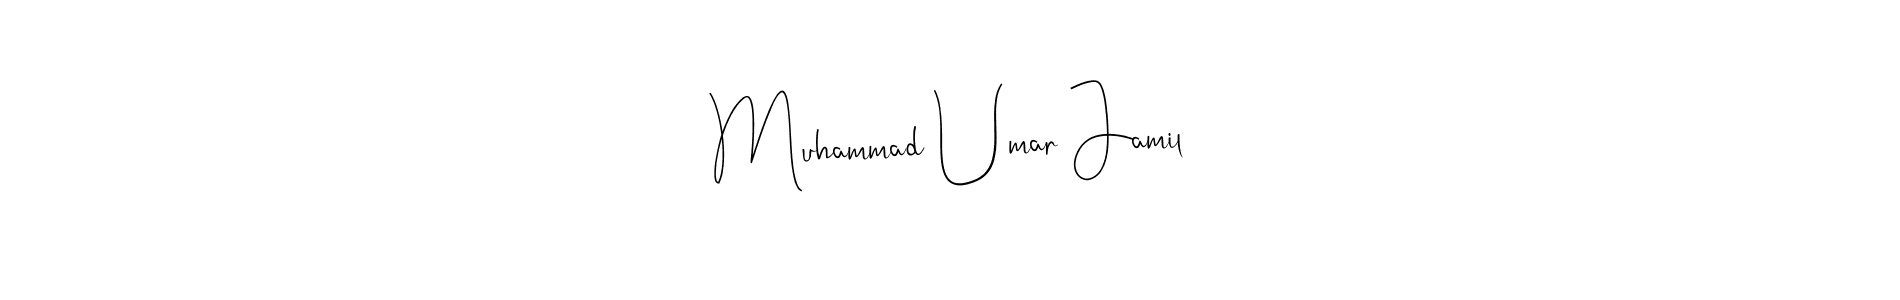 Muhammad Umar Jamil